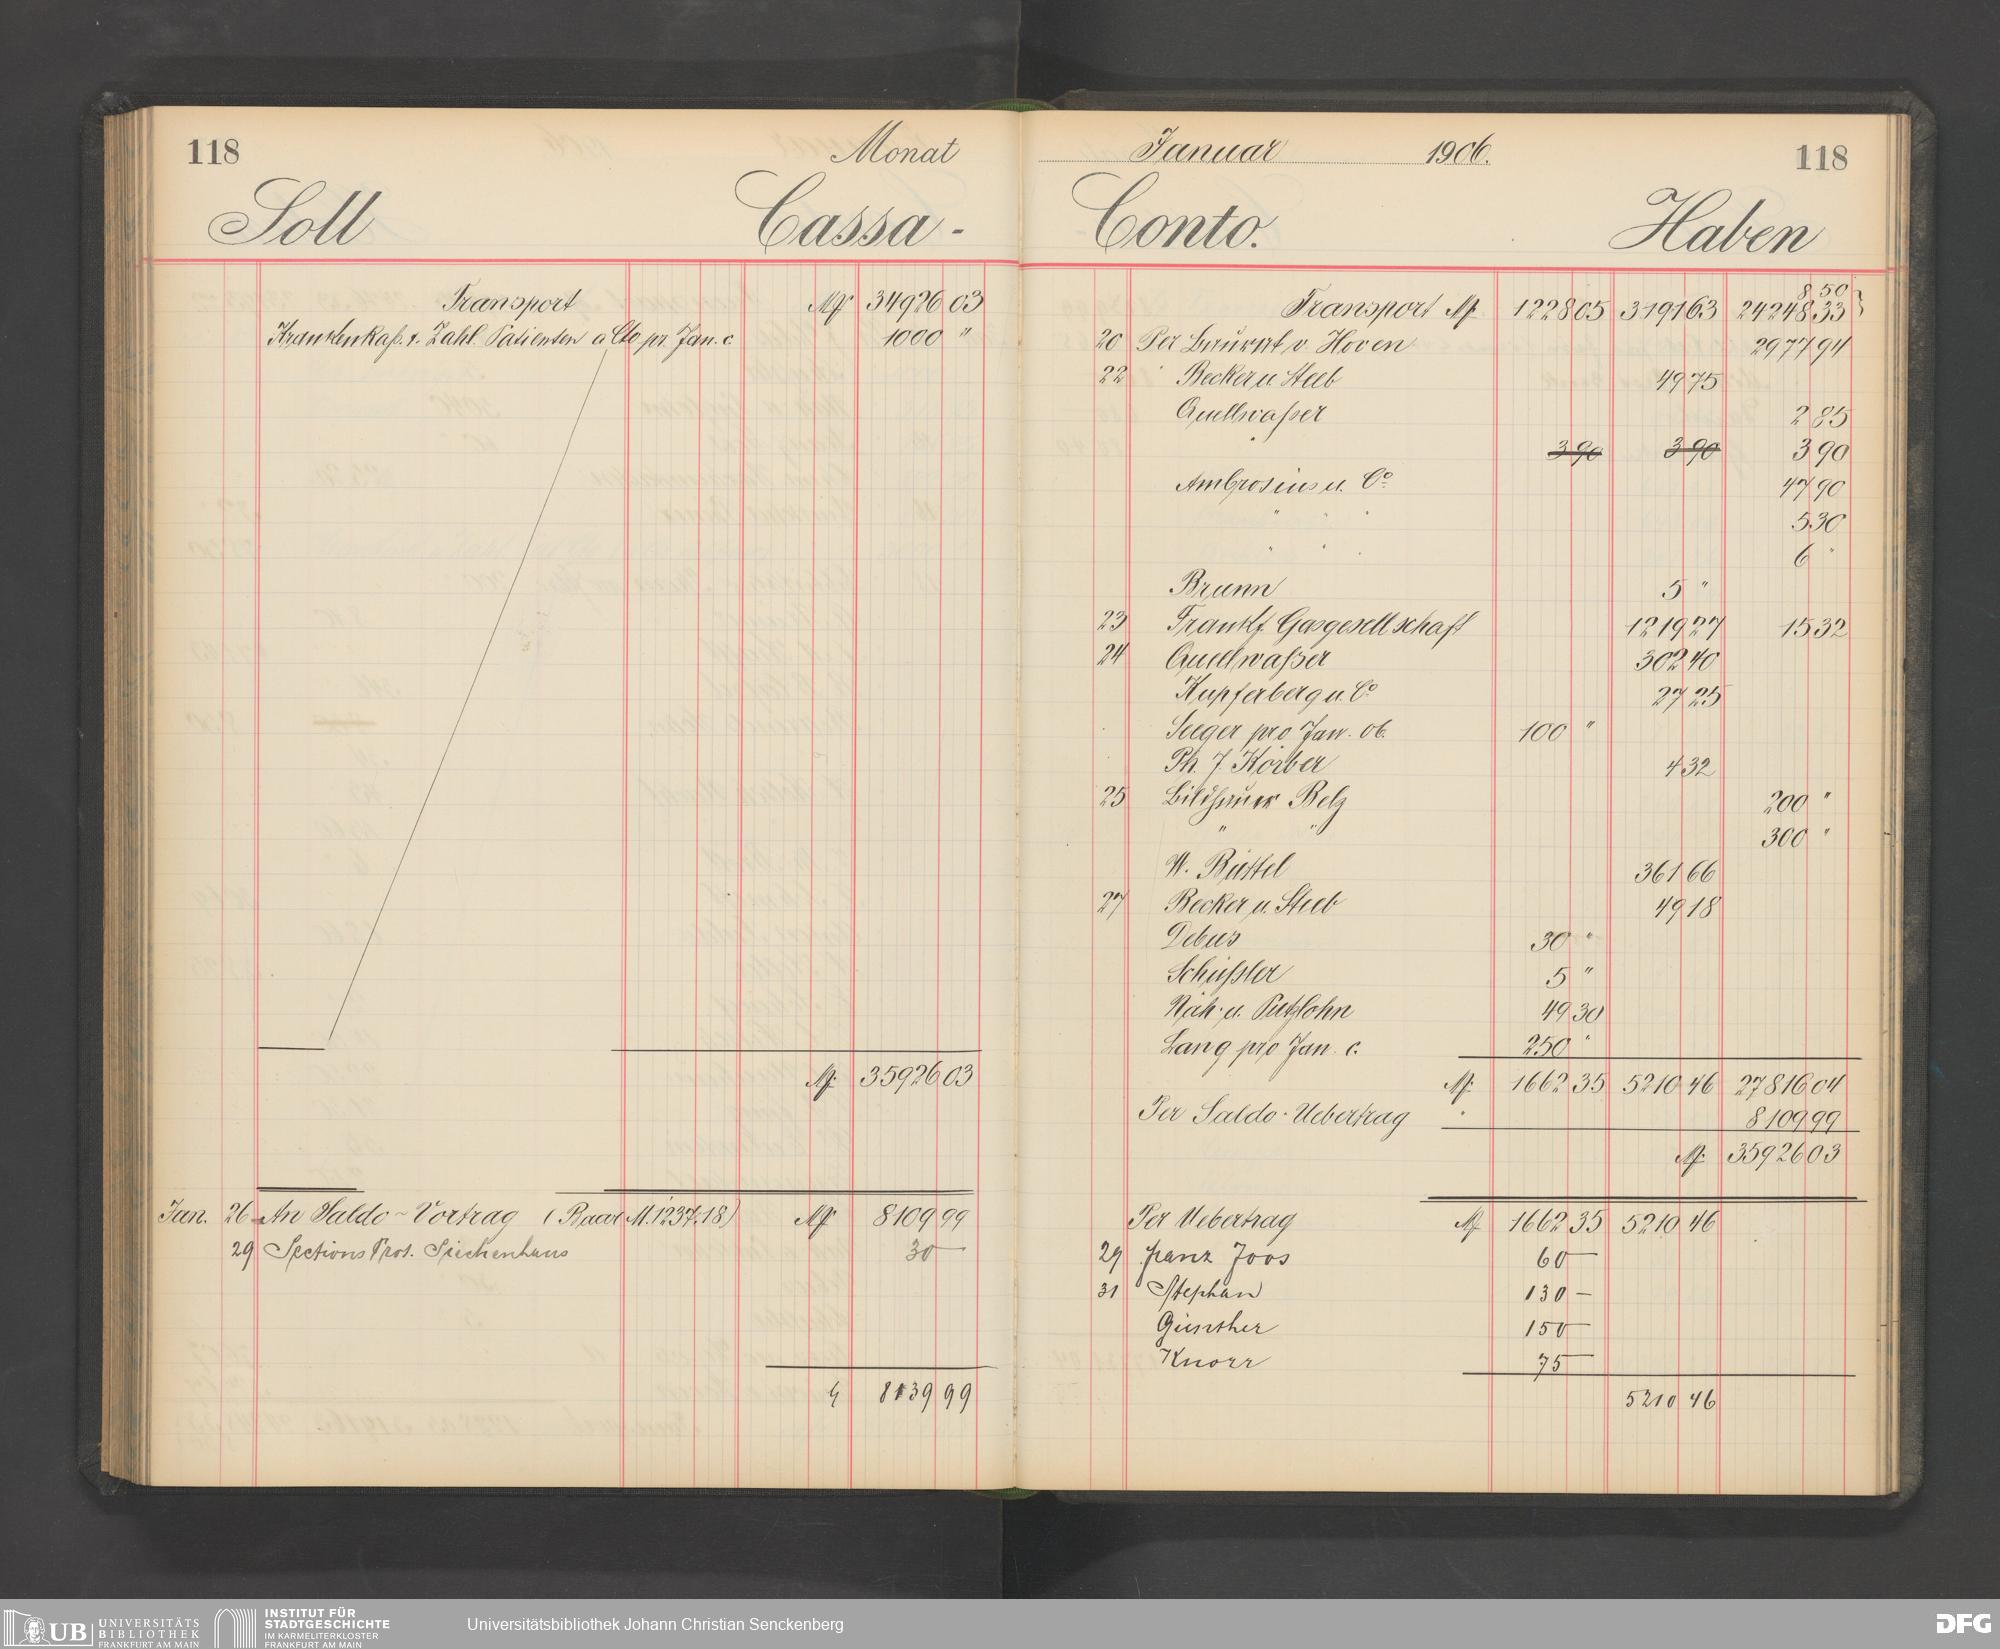 118 Monat
Soll Cassa-
Transport M 34926 03
Krankenkaß. u. Zahl. Patienten a Cto pr. Jan. c. 1000 "
M 35926 03
Jan. 26 An Saldo-Vortrag (Baar M. 1237.18) M 8109 99
29 Sections Prot. Siechenhaus 30 —
8139 99
Januar 1906. 118
Conto. Haben
8 50
Transport M 1228 05 3191 63 24248 33
20 Per Baurat v. Hoven 2977 94
22 " Becker u. Steeb 49 75
Quellwaßer 2 85
" 3 90 3 90 3 90
Ambrosius u. Co 47 90
" " " 5 30
" " " 6 "
Brunn 5 "
23 Frankf. Gasgesellschaft 1219 27 15 32
24 Quellwaßer 302 40
Kupferberg u. Co 27 25
Seeger pro Jan. 06. 100 "
Ph. J. Körber 4 32
25 Bildhauer Belz 200 "
" " 300 "
W. Büttel 361 66
27 Becker u. Steeb 49 18
Debus 30 "
Schüßler 5 "
Näh- u. Putzlohn 49 30
Lang pro Jan. c. 250 "
M 1662 35 5210 46 27816 04
Per Saldo-Uebertrag " 8109 99
M 35926 03
Per Uebertrag M 1662 35 5210 46
29 Franz Joos 60 —
31 Stephan 130 —
Günther 150 —
Knorr 75 —
5210 46
UB UNIVERSITÄTS
BIBLIOTHEK
FRANKFURT AM MAIN
INSTITUT FÜR
STADTGESCHICHTE
IM KARMELITERKLOSTER
FRANKFURT AM MAIN
Universitätsbibliothek Johann Christian Senckenberg
DFG